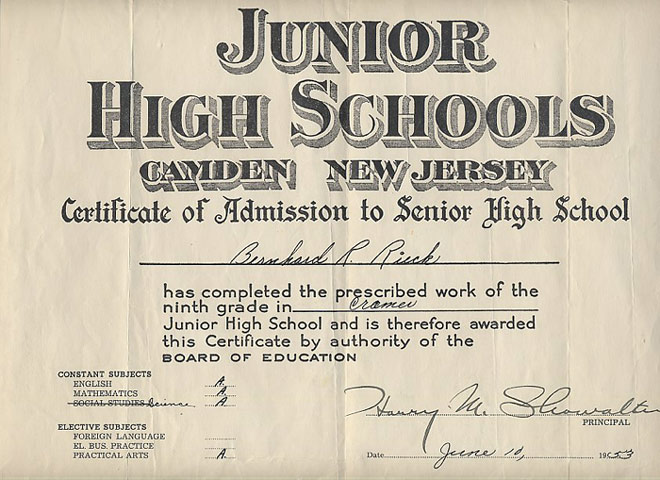 JUNIOR
HIGH SCHOOLS
CAMDEN NEW JERSEY
Certificate of Admission to Senior High School
Bernhard R. Rieck
has completed the prescribed work of the
ninth grade in Cramer
Junior High School and is therefore awarded
this Certificate by authority of the
BOARD OF EDUCATION
CONSTANT SUBJECTS
ENGLISH A.
MATHEMATICS A.
SOCIAL STUDIES Science A.
ELECTIVE SUBJECTS
FOREIGN LANGUAGE
EL. BUS. PRACTICE
PRACTICAL ARTS A.
Harry M. Showalter
PRINCIPAL
Date June 10, 1953